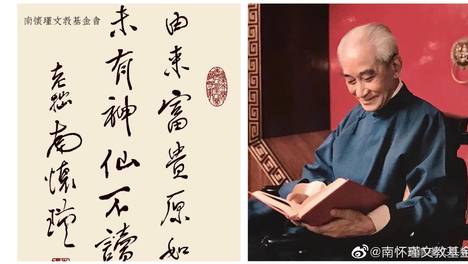 南懷瑾文教基金會
由来富貴原如
未有神仙不讀
老拙南懷瑾
@南怀瑾文教基金